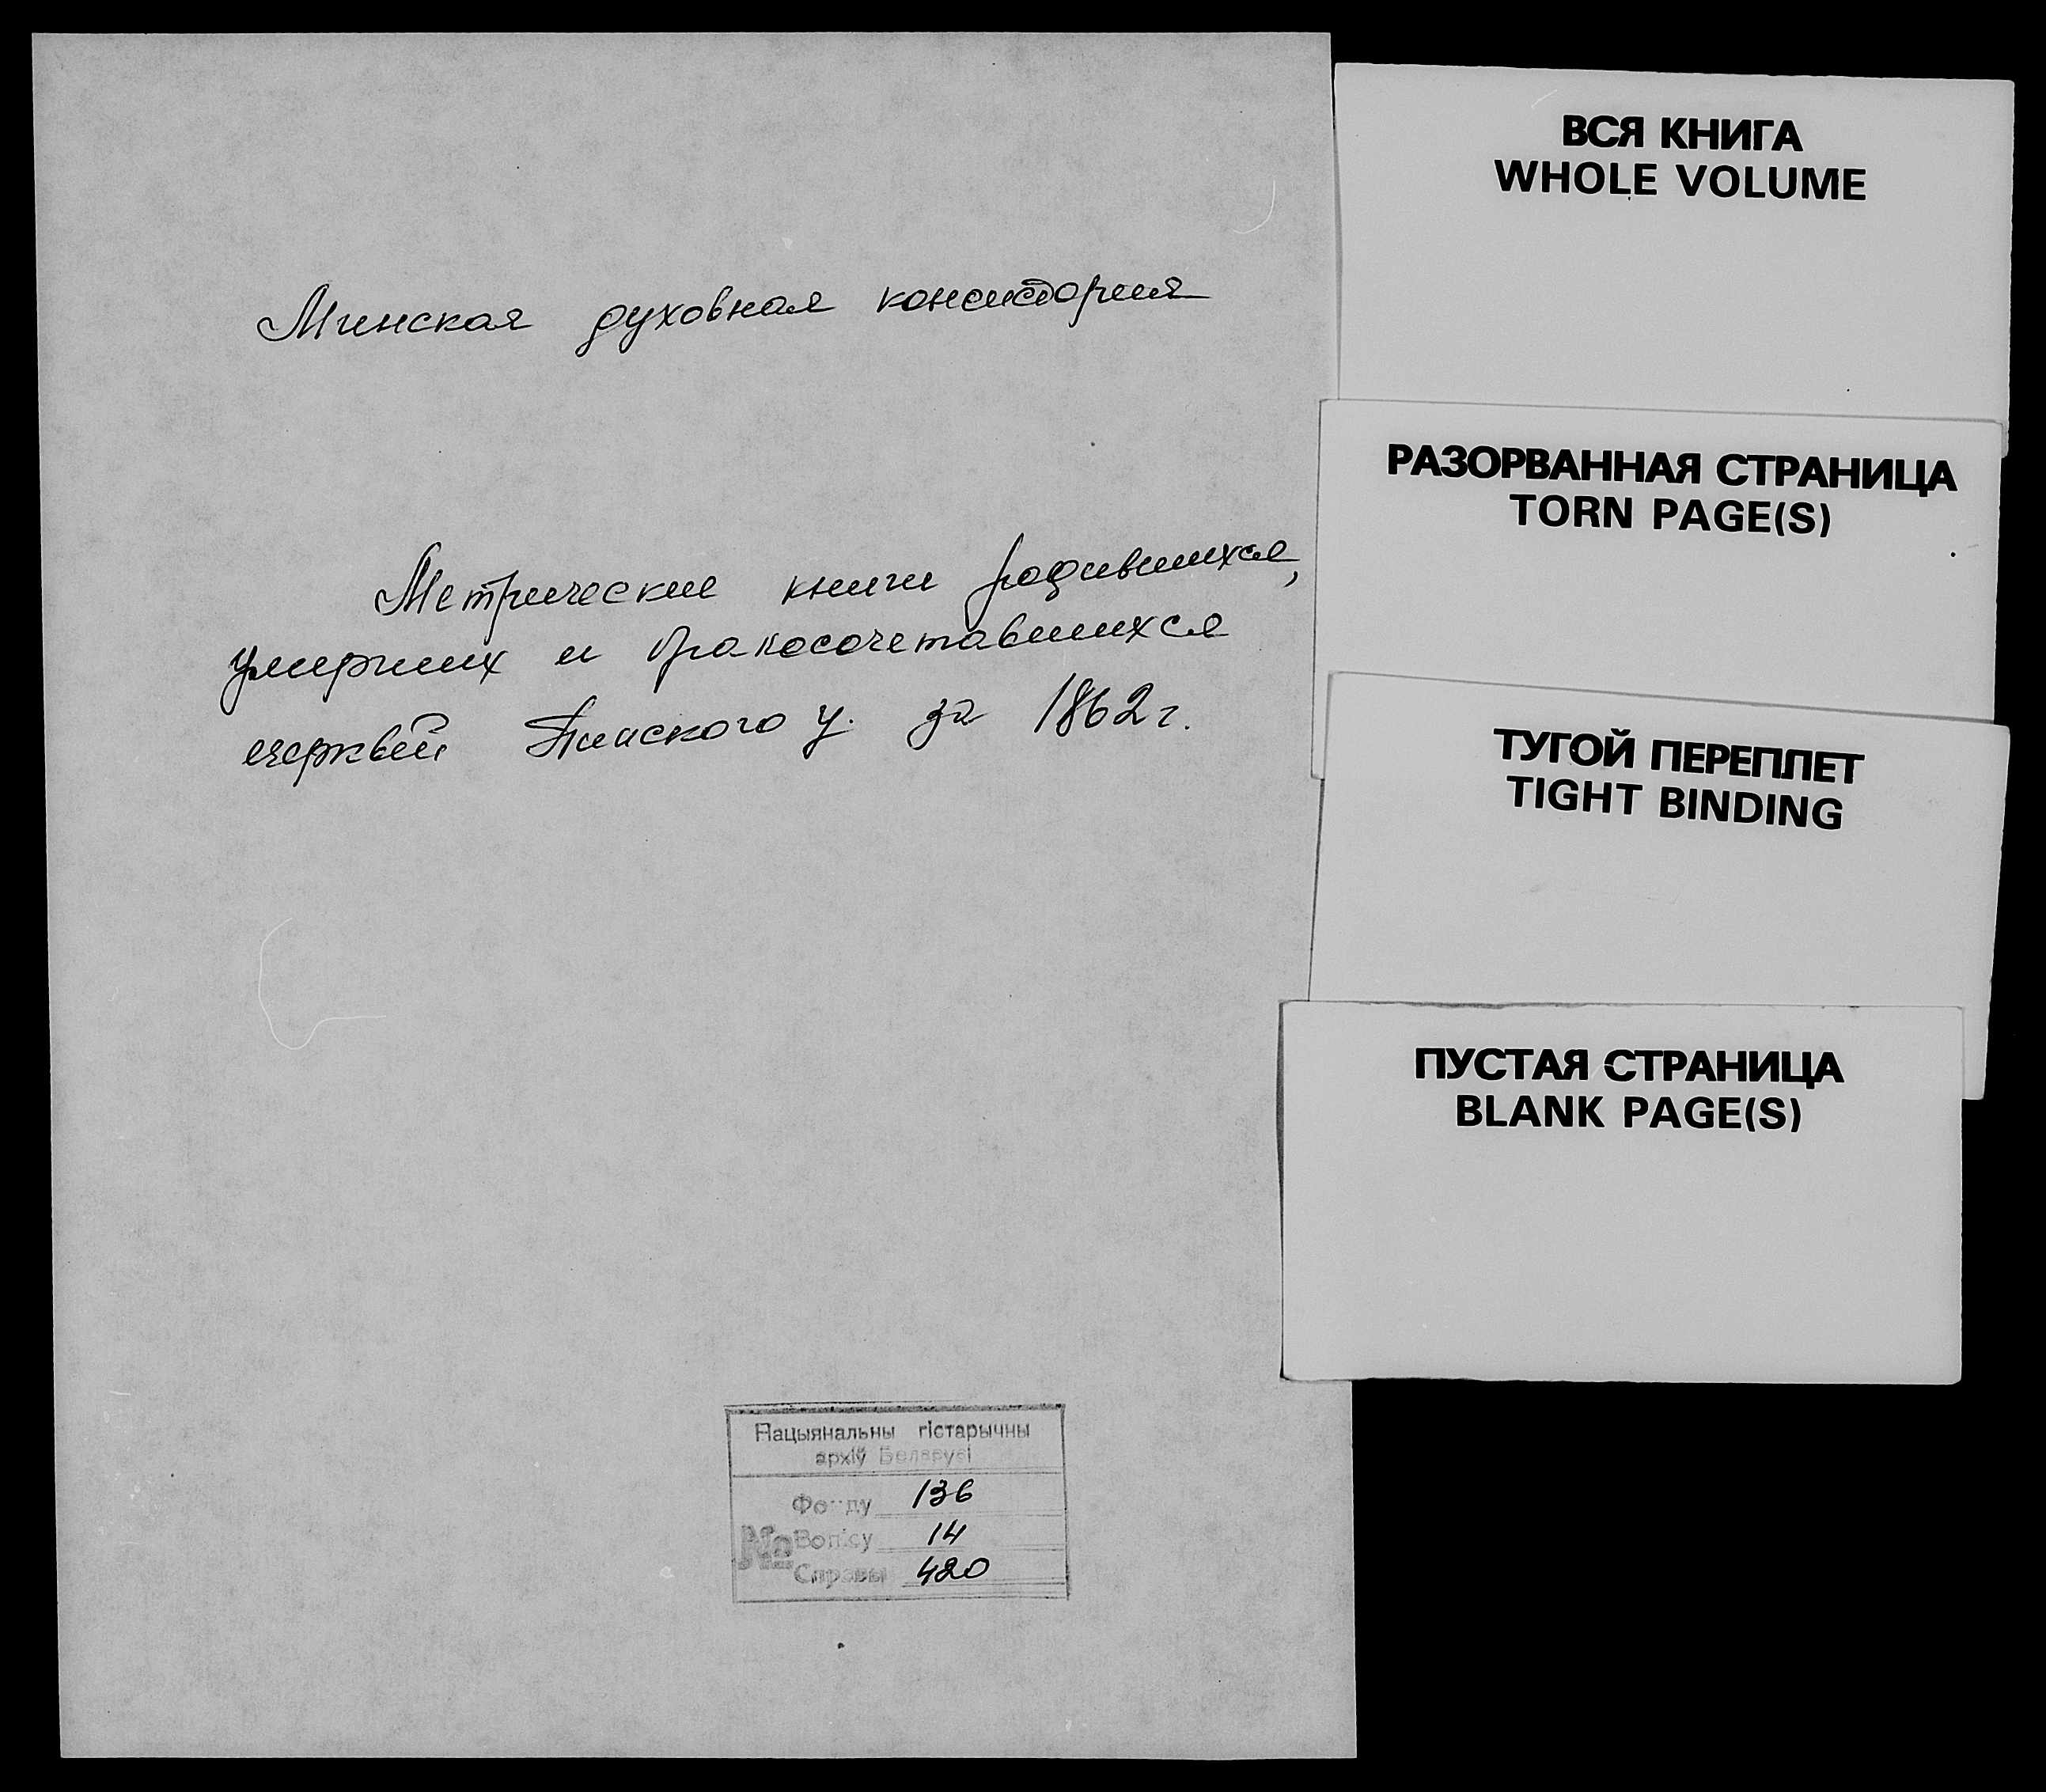 Минская духовная консистория
Метрические книги родившихся,
умерших и бракосочетавшихся
церквей Пинского у. за 1862 г.
Нацыянальны гістарычны
архіў Беларусі
Фонду 136
№ Вопісу 14
Справы 420
ВСЯ КНИГА
WHOLE VOLUME
РАЗОРВАННАЯ СТРАНИЦА
TORN PAGE(S)
ТУГОЙ ПЕРЕПЛЕТ
TIGHT BINDING
ПУСТАЯ СТРАНИЦА
BLANK PAGE(S)